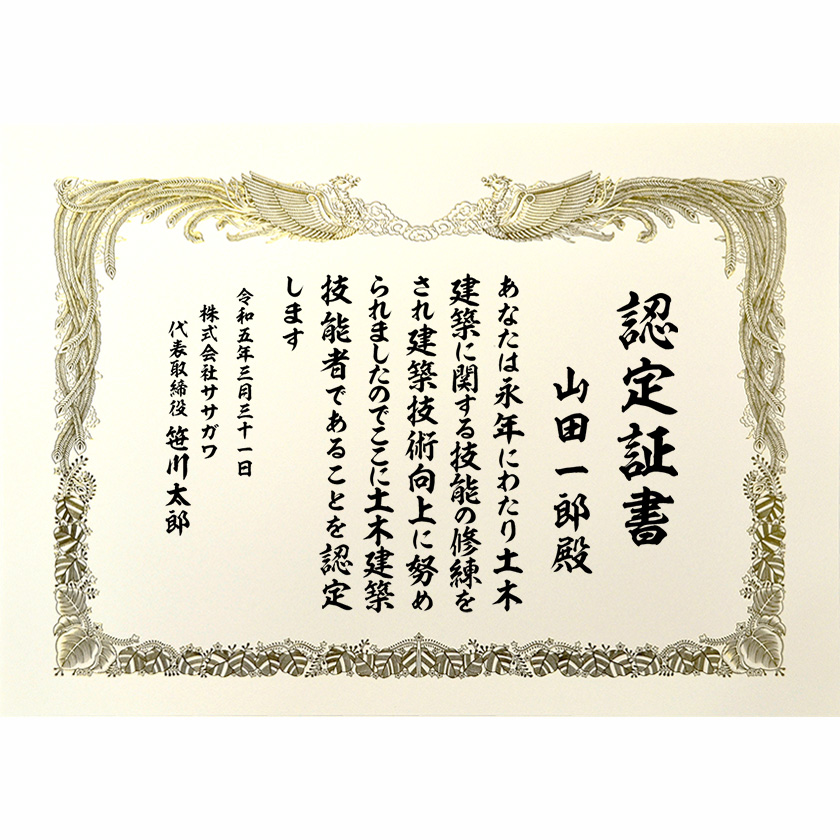 認定証書
山田一郎殿
あなたは永年にわたり土木
建築に関する技能の修練を
され建築技術向上に努め
られましたのでここに土木建築
技能者であることを認定
します
令和五年三月三十一日
株式会社ササガワ
代表取締役 笹川太郎